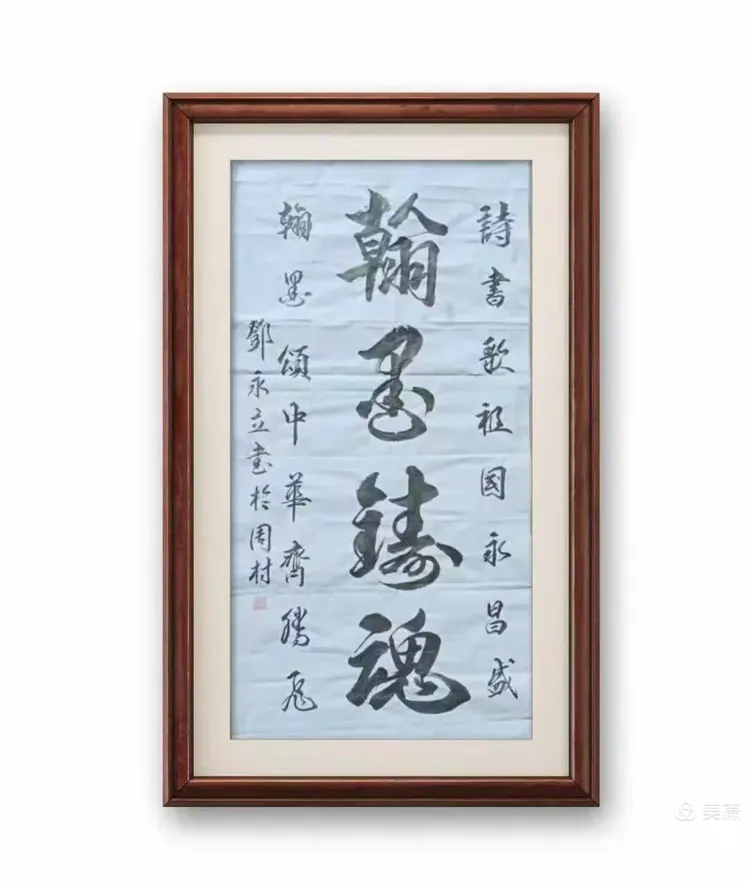 詩書歌祖國永昌盛
翰墨鑄魂
翰墨頌中華齊騰飛
鄧永立書於周村
美篇